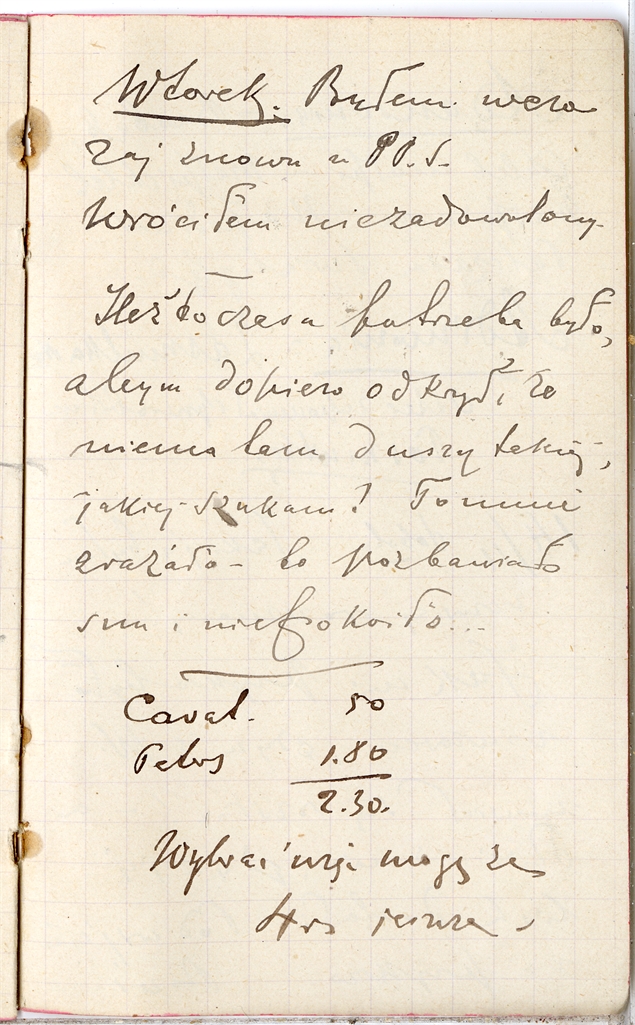 Wtorek. Byłem wczo
raj znowu u PP. S.
Wróciłem niezadowolony
Ileż to czasu potrzeba było,
abym dopiero odkrył, że
niema tam duszy takiej,
jakiej szukam! To mnie
zrażało – to pozbawiało
snu i niepokoiło...
Caval. 50
Petrs 1.80
2.30.
Wybrać więc mogę ze
4 rs jeszcze –